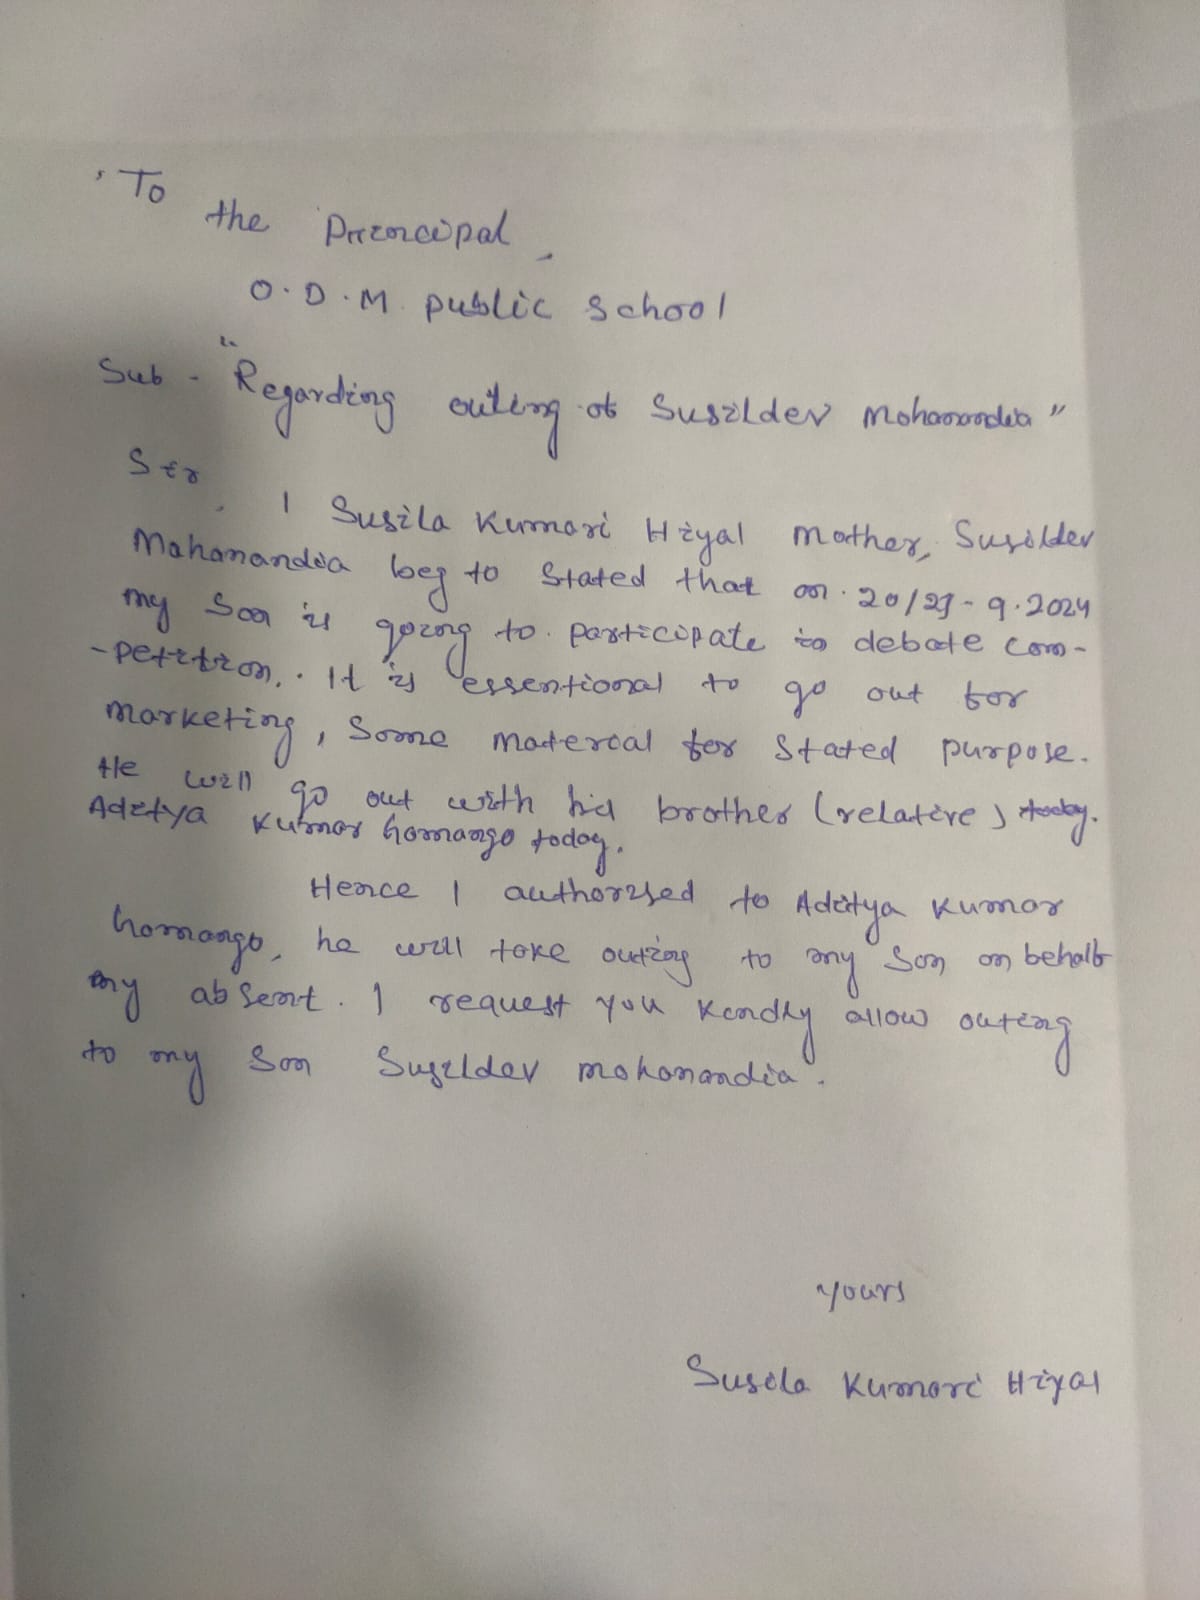 To
the Prencipal,
O.D.M. public School
Sub - "Regarding outing of Susildev Mohanandia"
Sir,
I Susila Kumari Hiyal Mother, Susildev
Mahanandia beg to Stated that on 20/21-9.2024
my Son is going to participate in debate com-
-petition. It is essentional to go out for
marketing, Some material for Stated purpose.
He will go out with his brother (relative) today.
Aditya Kumar homango today.
Hence I authorised to Aditya Kumar
homango, he will take outing to my Son on behalf
my absent. I request you Kindly allow outing
to my Son Susildev mohanandia.
Yours
Susila Kumari Hiyal